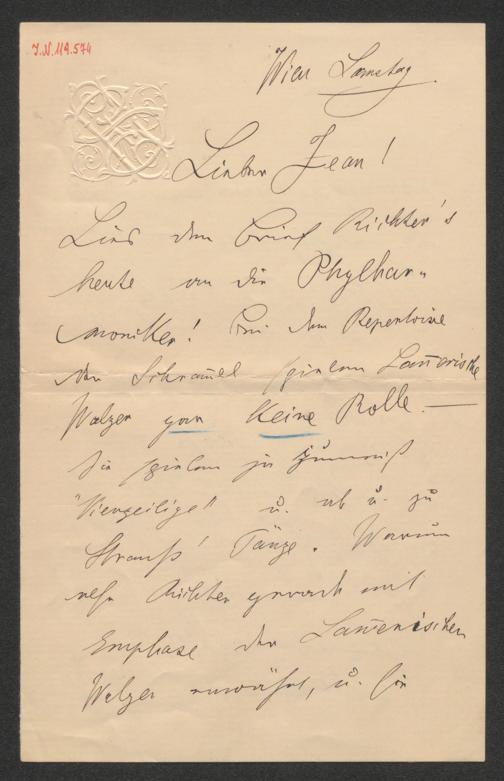 J.N. 119.574
Wien Samstag.
Lieber Jean!
Lies den Brief Richter's
heute an die Phylhar-
moniker! Bei dem Repertoire
der Schram̄el spielen Lan̄erische
Walzer gar keine Rolle. —
Sie spielen ja zumeist
"Vierzeilige" u. ab u. zu
Strauss' Tänze. Warum
also Richter gerade mit
Emphase der Lan̄erischen
Walzer erwähnt, u. sie